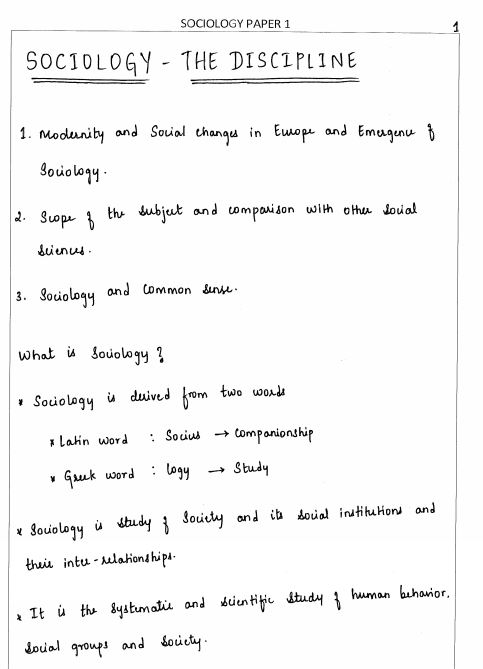 SOCIOLOGY PAPER 1
1
SOCIOLOGY - THE DISCIPLINE
1. Modernity and Social changes in Europe and Emergence of
Sociology.
2. Scope of the subject and comparison with other social
sciences.
3. Sociology and common sense.
What is Sociology?
* Sociology is derived from two words
* Latin word : Socius → companionship
* Greek word : logy → Study
* Sociology is study of Society and its social institutions and
their inter-relationships.
* It is the systematic and scientific study of human behavior,
social groups and society.